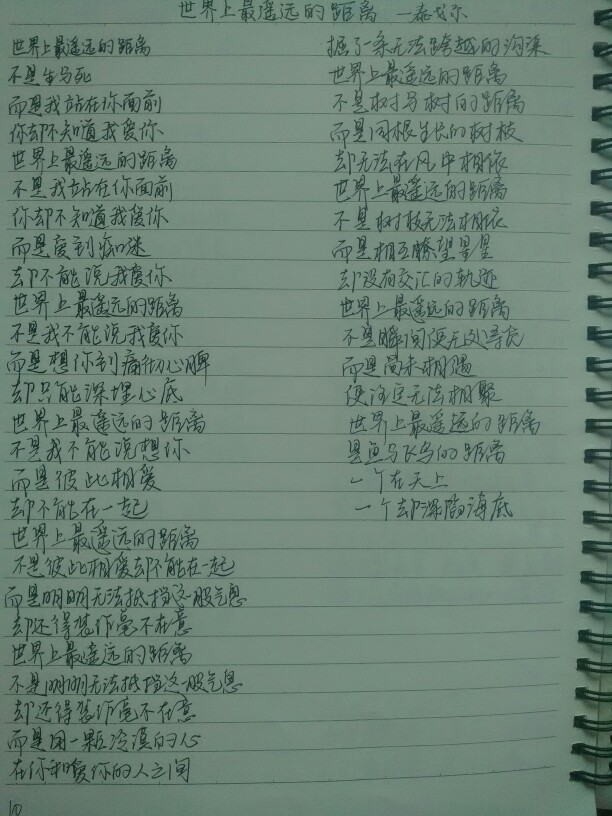 世界上最遥远的距离 —泰戈尔
世界上最遥远的距离
不是生与死
而是我站在你面前
你却不知道我爱你
世界上最遥远的距离
不是我站在你面前
你却不知道我爱你
而是爱到痴迷
却不能说我爱你
世界上最遥远的距离
不是我不能说我爱你
而是想你到痛彻心脾
却只能深埋心底
世界上最遥远的距离
不是我不能说想你
而是彼此相爱
却不能在一起
世界上最遥远的距离
不是彼此相爱却不能在一起
而是明明无法抵挡这一股气息
却还得装作毫不在意
世界上最遥远的距离
不是明明无法抵挡这一股气息
却还得装作毫不在意
而是用一颗冷漠的心
在你和爱你的人之间
掘了一条无法跨越的沟渠
世界上最遥远的距离
不是树与树的距离
而是同根生长的树枝
却无法在风中相依
世界上最遥远的距离
不是树枝无法相依
而是相互瞭望星星
却没有交汇的轨迹
世界上最遥远的距离
不是瞬间便无处寻觅
而是尚未相遇
便注定无法相聚
世界上最遥远的距离
是鱼与飞鸟的距离
一个在天上
一个却深陷海底